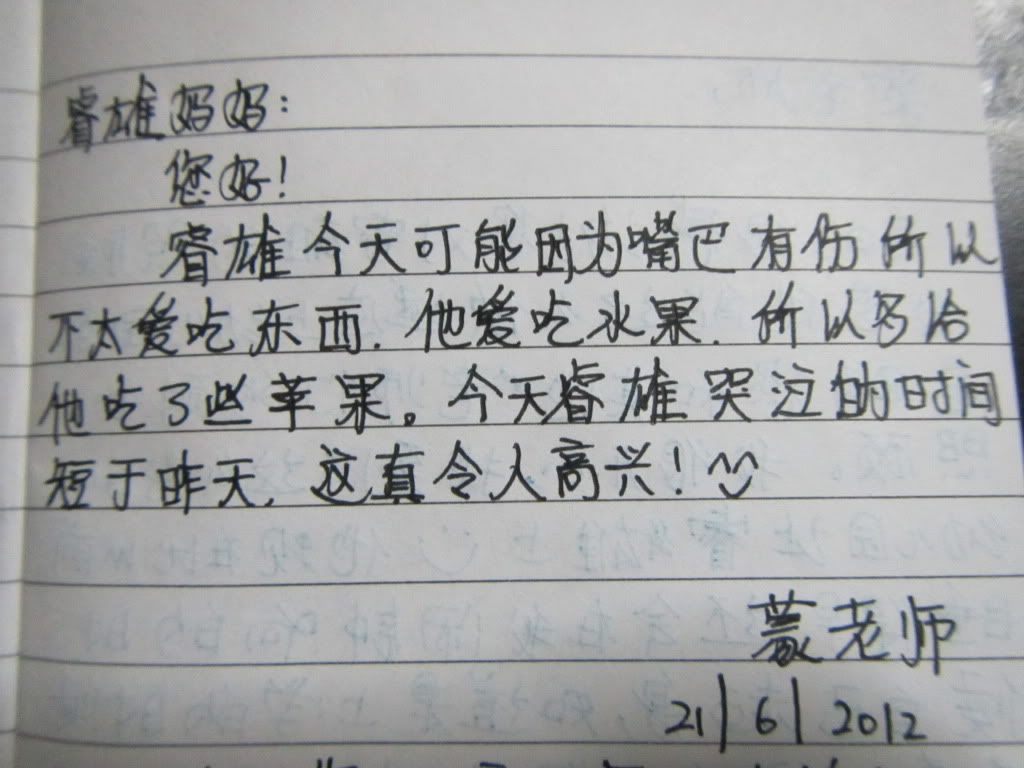 睿雄妈妈:
您好!
睿雄今天可能因为嘴巴有伤所以
不太爱吃东西.他爱吃水果.所以多给
他吃了些苹果。今天睿雄哭泣的时间
短于昨天.这真令人高兴!^^
蒙老师
21/6/2012